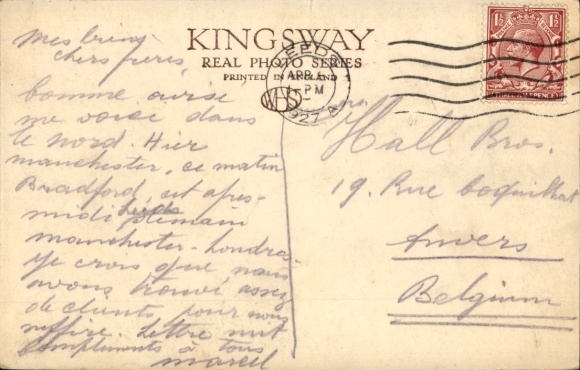 KINGSWAY
REAL PHOTO SERIES
PRINTED IN ENGLAND
WHS
LEEDS
APR
5 PM
1927
1½ 1½
Mes biens
chers frères,
comme
me voici dans
le nord. Hier
manchester, ce matin
Bradford, cet après-
midi Leeds demain
manchester - Londres
Je crois que nous
avons trouvé assez
de clients pour nous
suffire. Lettre suit
compliments à tous
marcel
Hall Bros.
19. Rue Coquilhat
Anvers
Belgium